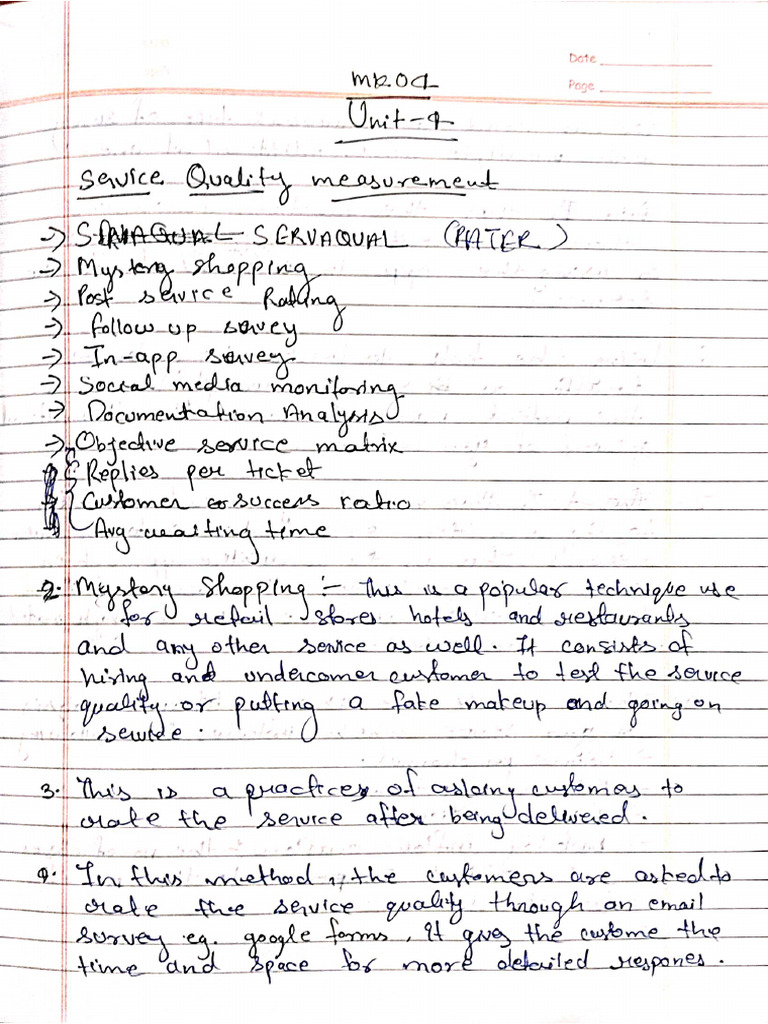 Date
Page
MK04
Unit-4
Service Quality measurement
-> SERVAQUAL (RATER)
-> Mystery Shopping
-> Post service Rating
-> follow up survey
-> In-app survey
-> Social media monitoring
-> Documentration Analysis
-> Objective service matrix
Replies per ticket
Customer success ratio
Avg waiting time
2. Mystery Shopping :- This is a popular technique use
for retail stores hotels and restaurants
and any other service as well. It consists of
hiring and undercomer customer to test the service
quality or putting a fake makeup and going on
service.
3. This is a practices of asking customers to
rate the service after being delivered.
4. In this method, the customers are asked to
rate the service quality through an email
survey eg. google forms, It gives the custome the
time and space for more detailed respones.